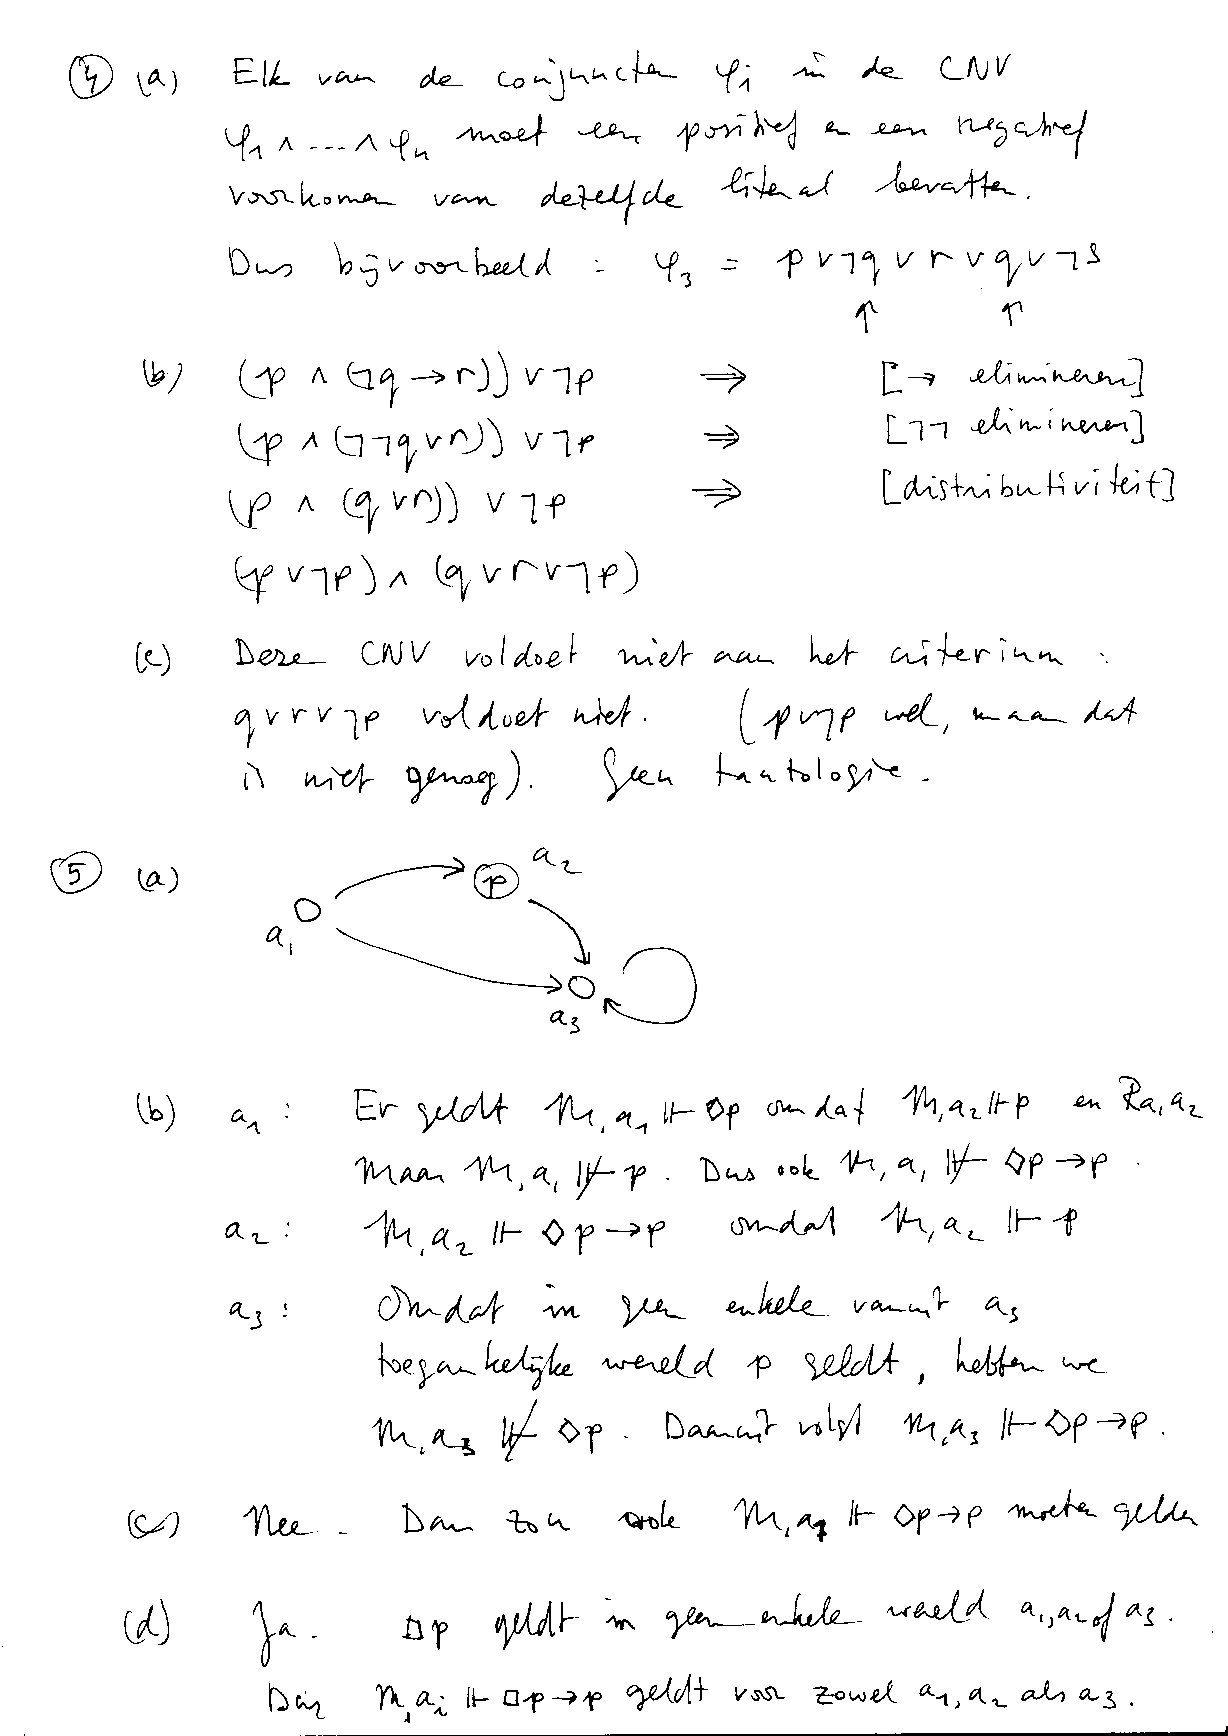 ④ (a) Elk van de conjuncten φi in de CNV
φ1 ∧ ... ∧ φn moet een positief en een negatief
voorkomen van dezelfde literal bevatten.
Dus bijvoorbeeld : φ3 = p ∨ ¬q ∨ r ∨ q ∨ ¬s
↑ ↑
(b) (p ∧ (¬q → r)) ∨ ¬p ⇒ [→ elimineren]
(p ∧ (¬¬q ∨ r)) ∨ ¬p ⇒ [¬¬ elimineren]
(p ∧ (q ∨ r)) ∨ ¬p ⇒ [distributiviteit]
(p ∨ ¬p) ∧ (q ∨ r ∨ ¬p)
(c) Deze CNV voldoet niet aan het criterium :
q ∨ r ∨ ¬p voldoet niet. (p ∨ ¬p wel, maar dat
is niet genoeg). Geen tautologie.
⑤ (a)
p a2
a1
a3
(b) a1 : Er geldt M, a1 ⊩ ◇p omdat M, a2 ⊩ p en Ra1a2
Maar M, a1 ⊮ p. Dus ook M, a1 ⊮ ◇p → p.
a2 : M, a2 ⊩ ◇p → p omdat M, a2 ⊩ p
a3 : Omdat in geen enkele vanuit a3
toegankelijke wereld p geldt, hebben we
M, a3 ⊮ ◇p. Daaruit volgt M, a3 ⊩ ◇p → p.
(c) Nee. Dan zou ook M, a1 ⊩ ◇p → p moeten gelden
(d) Ja. □p geldt in geen enkele wereld a1, a2 of a3.
Dus M, ai ⊩ □p → p geldt voor zowel a1, a2 als a3.